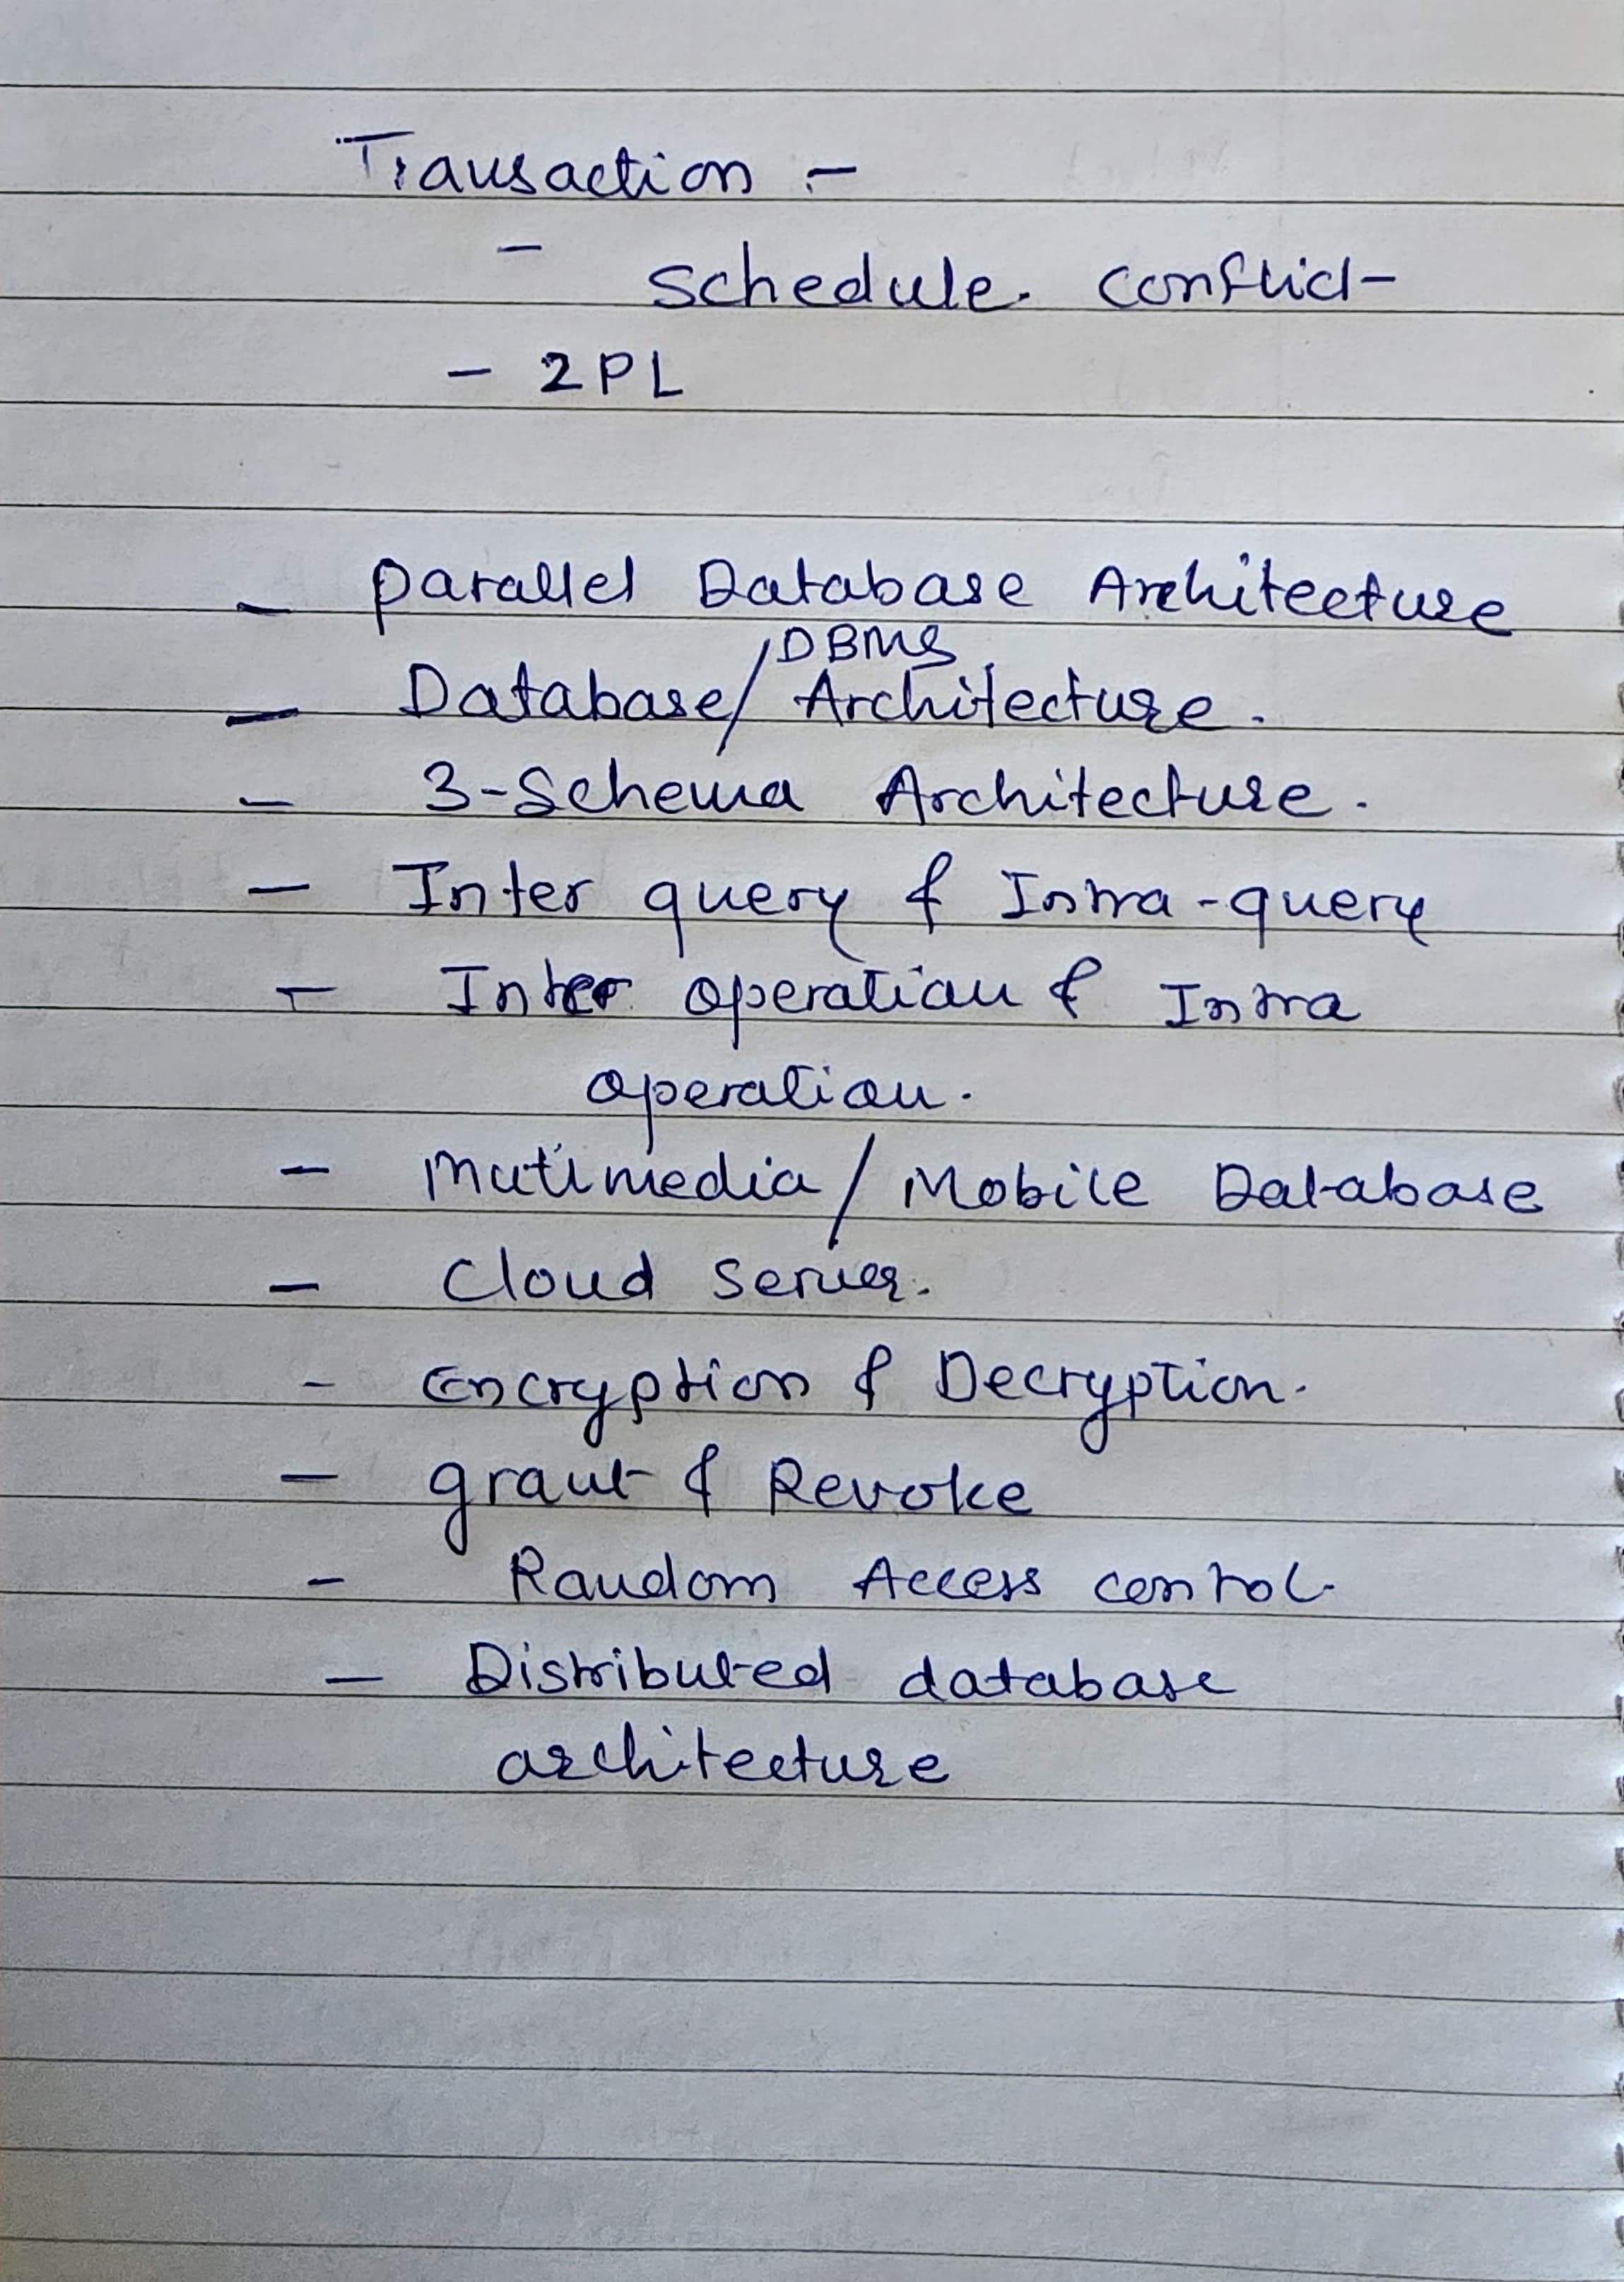 Transaction :-
- Schedule Conflict
- 2PL
- Parallel Database Architecture
- Database/DBMS Architecture.
- 3-Schema Architecture.
- Inter query & Intra-query
- Inter operation & Intra
operation.
- Mutimedia/Mobile Database
- Cloud Server.
- Encryption & Decryption.
- grant & Revoke
- Random Access control.
- Distributed database
architecture